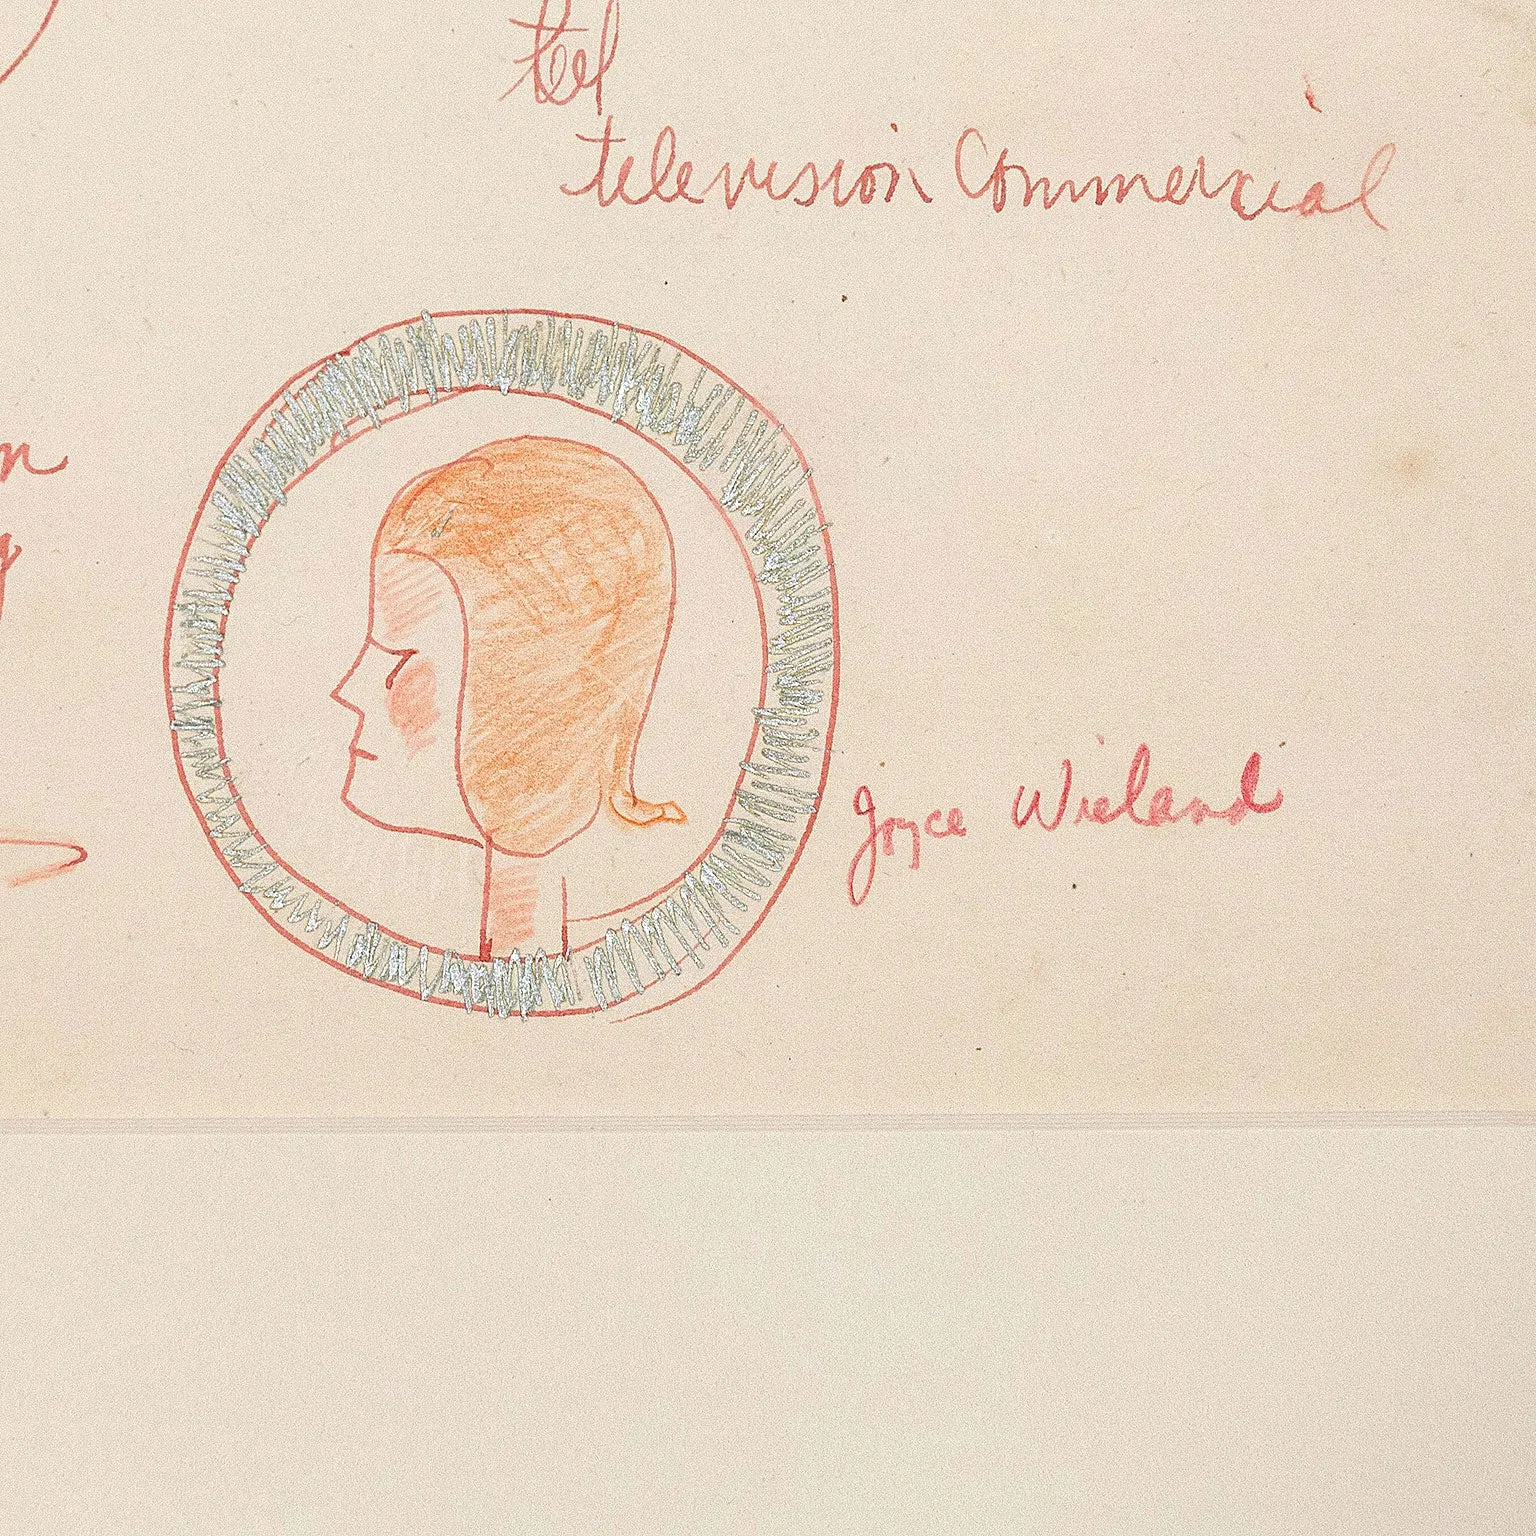 tel
television Commercial
n
y
Joyce Wieland